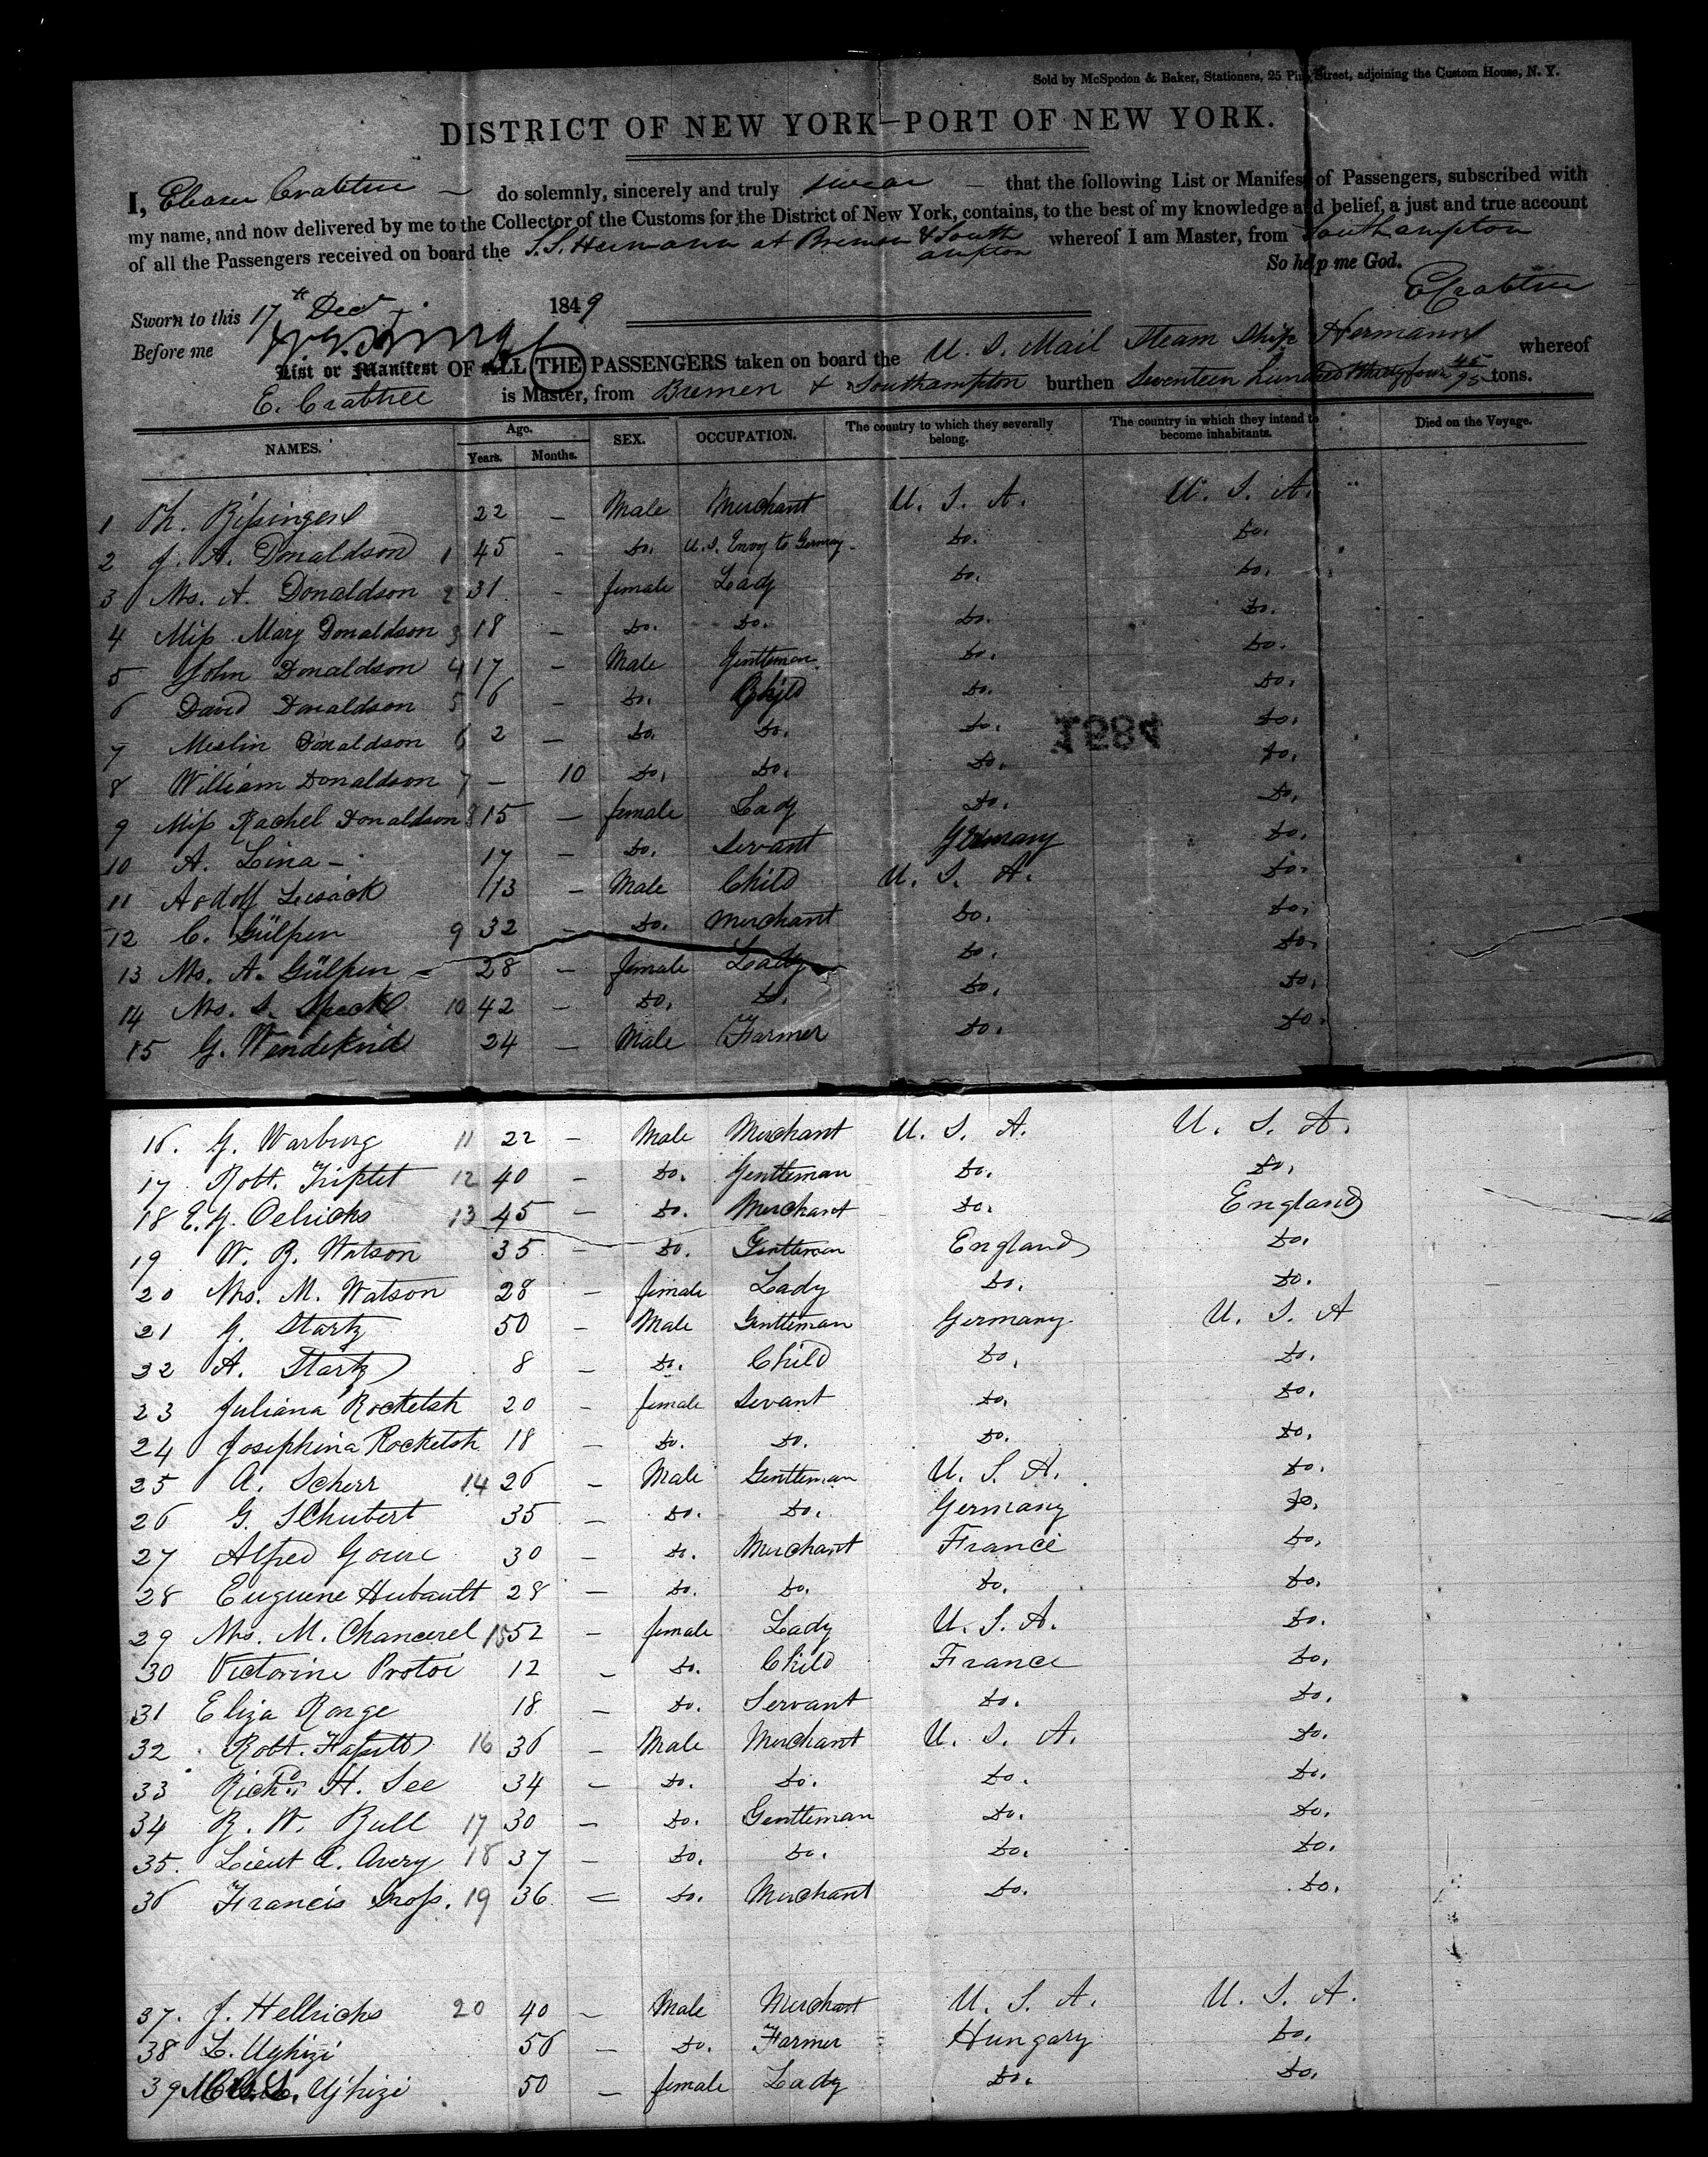 Sold by McSpedon & Baker, Stationers, 25 Pine Street, adjoining the Custom House, N. Y.
DISTRICT OF NEW YORK—PORT OF NEW YORK.
I, Eleaser Crabtree — do solemnly, sincerely and truly swear — that the following List or Manifest of Passengers, subscribed with
my name, and now delivered by me to the Collector of the Customs for the District of New York, contains, to the best of my knowledge and belief, a just and true account
of all the Passengers received on board the S.S. Hermann at Bremen & Southampton whereof I am Master, from Southampton
So help me God.
E Crabtree
Sworn to this 17th Decr 1849
Before me
List or Manifest OF ALL THE PASSENGERS taken on board the U. S. Mail Steam Ship Hermann whereof
E. Crabtree is Master, from Bremen & Southampton burthen Seventeen hundred thirty four 45/95 tons.
NAMES. Age. Years. Months. SEX. OCCUPATION. The country to which they severally belong. The country in which they intend to become inhabitants. Died on the Voyage.
1 Th. 22 — Male Merchant U. S. A. U. S. A.
2 J. A. Donaldson 1 45 — do. U.S. Envoy to Germay do. do.
3 Mrs. A. Donaldson 2 31 — female Lady do. do.
4 Miss Mary Donaldson 3 18 — do. do. do. do.
5 John Donaldson 4 17 — Male Gentleman do. do.
6 David Donaldson 5 6 — do. Child do. do.
7 Donaldson 6 2 — do. do. do. do.
1584
8 William Donaldson 7 — 10 do. do. do. do.
9 Miss Rachel Donaldson 8 15 — female Lady do. do.
10 A. Lina — 17 — do. Servant Germany do.
11 Adolf Lusack 13 — Male Child U. S. A. do.
12 C. Gülpen 9 32 — do. Merchant do. do.
13 Mrs. A. Gülpen — 28 — female Lady do. do.
14 Mrs. S. Speck 10 42 — do. do. do. do.
15 G. 24 — Male Farmer do. do.
16. G. Warburg 11 22 — Male Merchant U. S. A. U. S. A.
17 Robt. Triplet 12 40 — do. Gentleman do. do.
18 E. G. Oelrichs 13 45 — do. Merchant do. England
19 W. B. Watson 35 — do. Gentleman England do.
20 Mrs. M. Watson 28 — female Lady do. do.
21 G. Startz 50 — Male Gentleman Germany. U. S. A
22 A. Startz 8 — do. Child do. do.
23 Juliana Rocketsh 20 — female Servant do. do.
24 Josephina Rocketsh 18 — do. do. do. do.
25 A. Scherr 14 26 — Male Gentleman U. S. A. do.
26 G. Schubert 35 — do. do. Germany do.
27 Alfred Goure 30 — do. Merchant France do.
28 Euguene Hubault 28 — do. do. do. do.
29 Mrs. M. Chancerel 15 52 — female Lady U. S. A. do.
30 Victorine Protoi 12 — do. Child France do.
31 Eliza Ronge 18 — do. Servant do. do.
32 Robt. 16 36 — Male Merchant U. S. A. do.
33 Richd. H. See 34 — do. do. do. do.
34 B. W. Bull 17 30 — do. Gentleman do. do.
35. Lieut C. Avery 18 37 — do. do. do. do.
36 Francis 19 36 = do. Merchant do. do.
37. J. Hellrichs 20 40 — Male Merchant U. S. A. U. S. A.
38 L. Ujhizi 56 — do. Farmer Hungary do.
39 Ujhizi 50 — female Lady do. do.